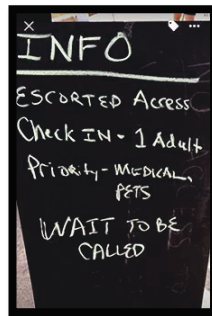 INFO
ESCORTED Access
Check IN - 1 Adult
Priority - MEDICAL,
PETS
WAIT TO BE
CALLED